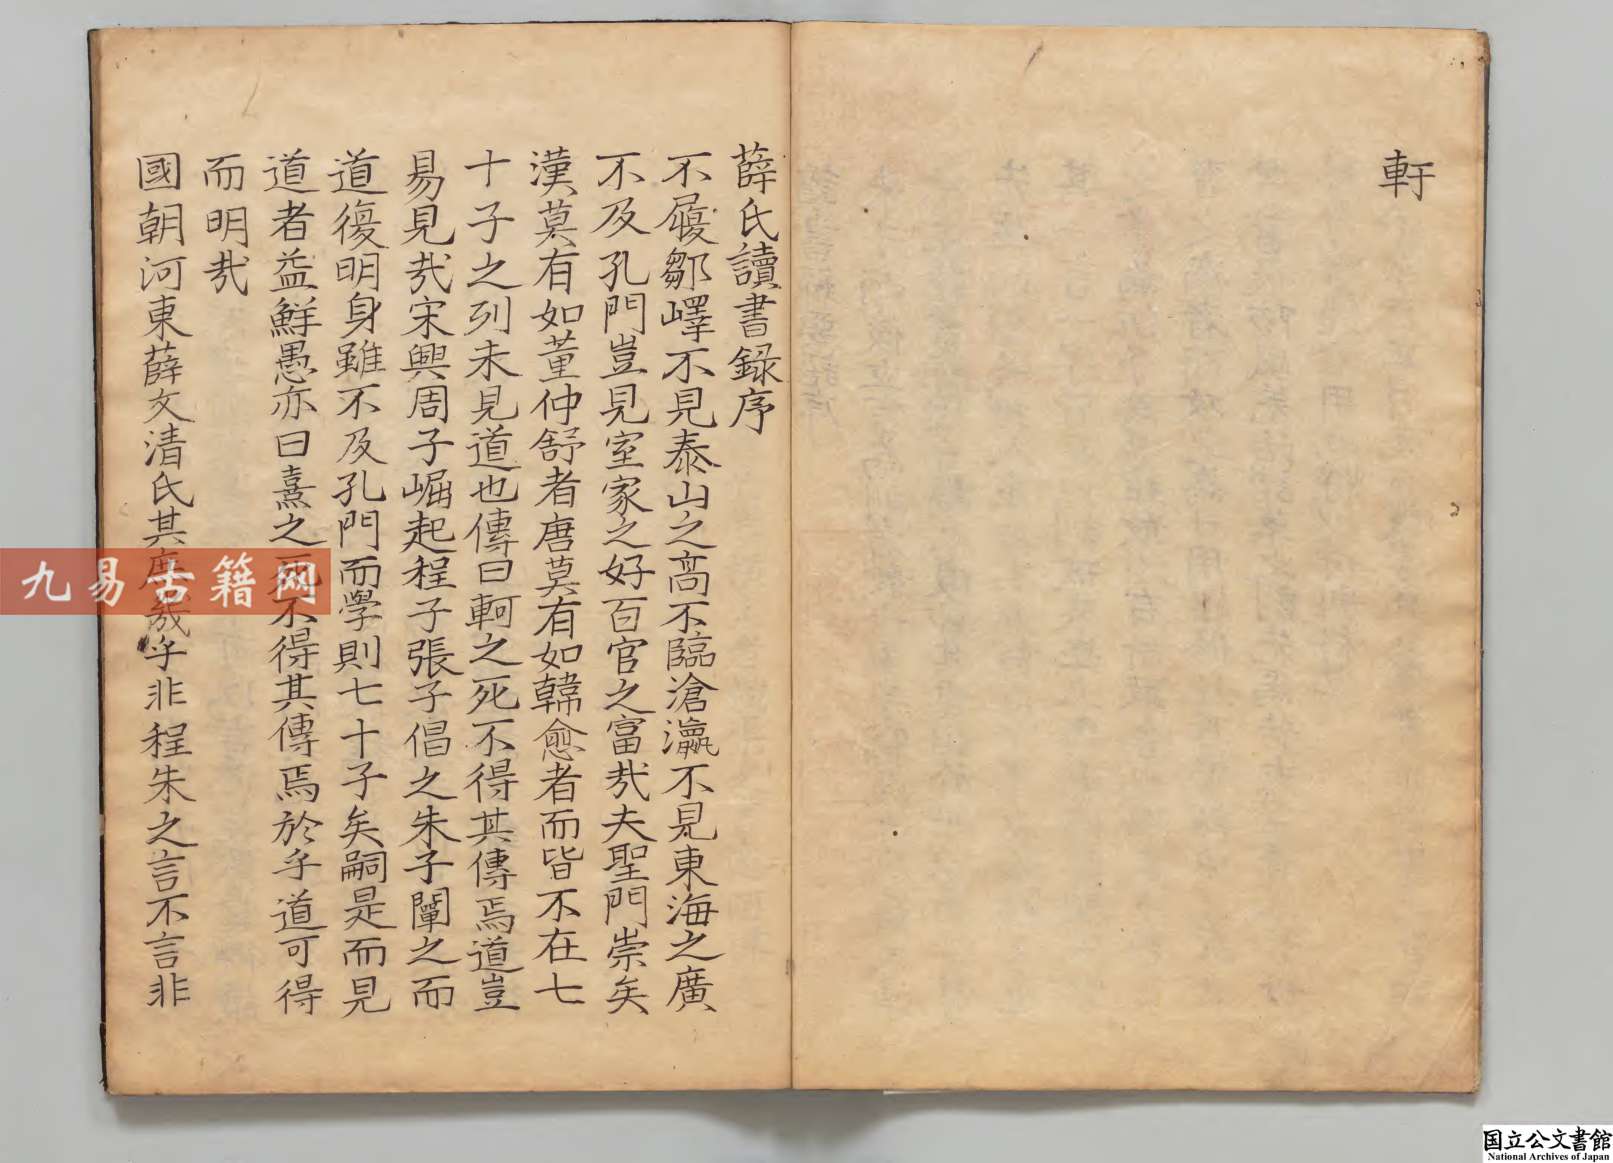 軒
薛氏讀書録序
不履鄒嶧不見泰山之高不臨滄瀛不見東海之廣
不及孔門豈見室家之好百官之富㢤夫聖門崇矣
漢莫有如董仲舒者唐莫有如韓愈者而皆不在七
十子之列未見道也傳曰軻之死不得其傳焉道豈
易見㢤宋興周子崛起程子張子倡之朱子闡之而
道復明身雖不及孔門而學則七十子矣嗣是而見
道者益鮮愚亦曰熹之死不得其傳焉於乎道可得
而明㢤
國朝河東薛文清氏其庶幾乎非程朱之言不言非
九易古籍网
国立公文書館
National Archives of Japan